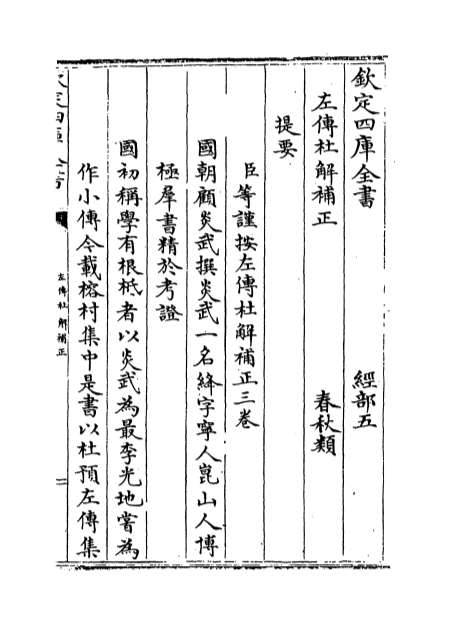 欽定四庫全書 經部五
左傳杜解補正 春秋類
提要
臣等謹按左傳杜解補正三卷
國朝顧炎武撰炎武一名絳字寧人崑山人博
極羣書精於考證
國初稱學有根柢者以炎武為最李光地嘗為
作小傳今載榕村集中是書以杜預左傳集
欽定四庫全書
左傳杜解補正